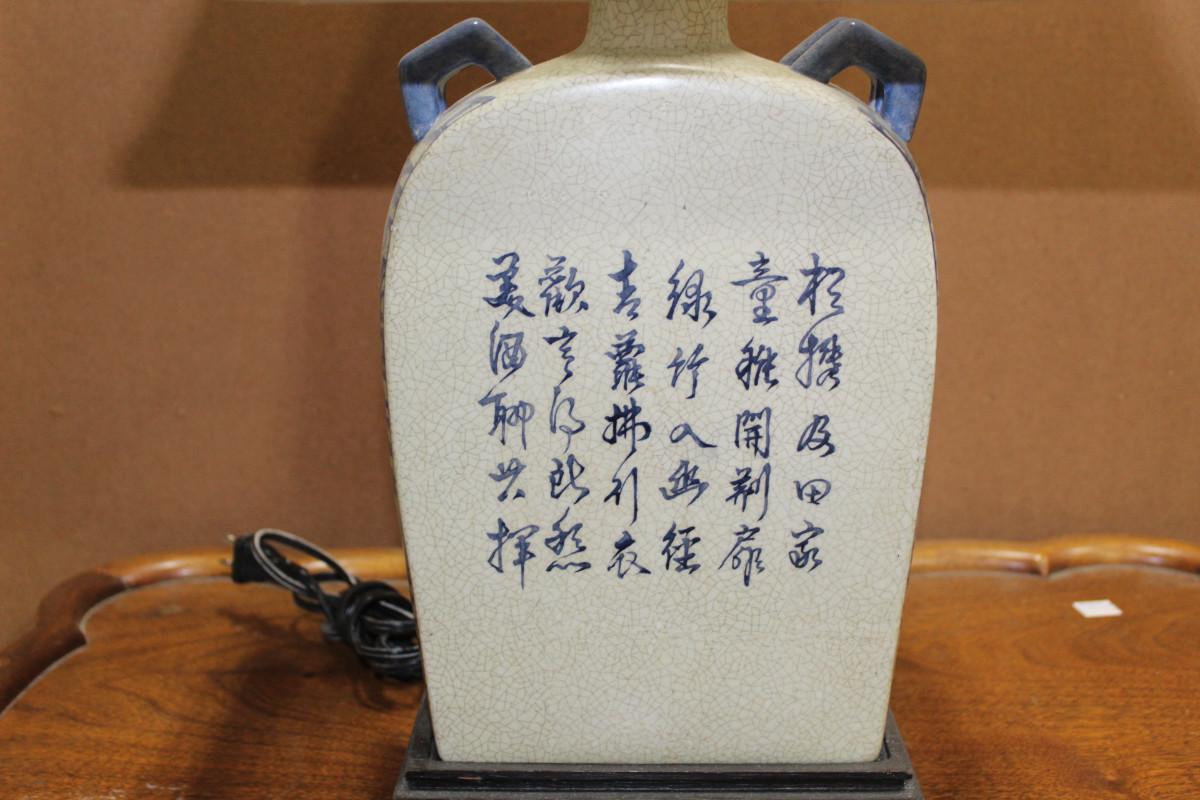 相攜及田家
童稚開荊扉
綠竹入幽徑
青蘿拂行衣
歡言得所憩
美酒聊共揮